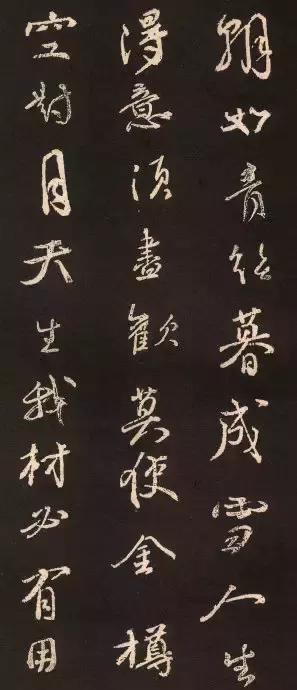 朝如青丝暮成雪人生
得意须尽欢莫使金樽
空对月天生我材必有用